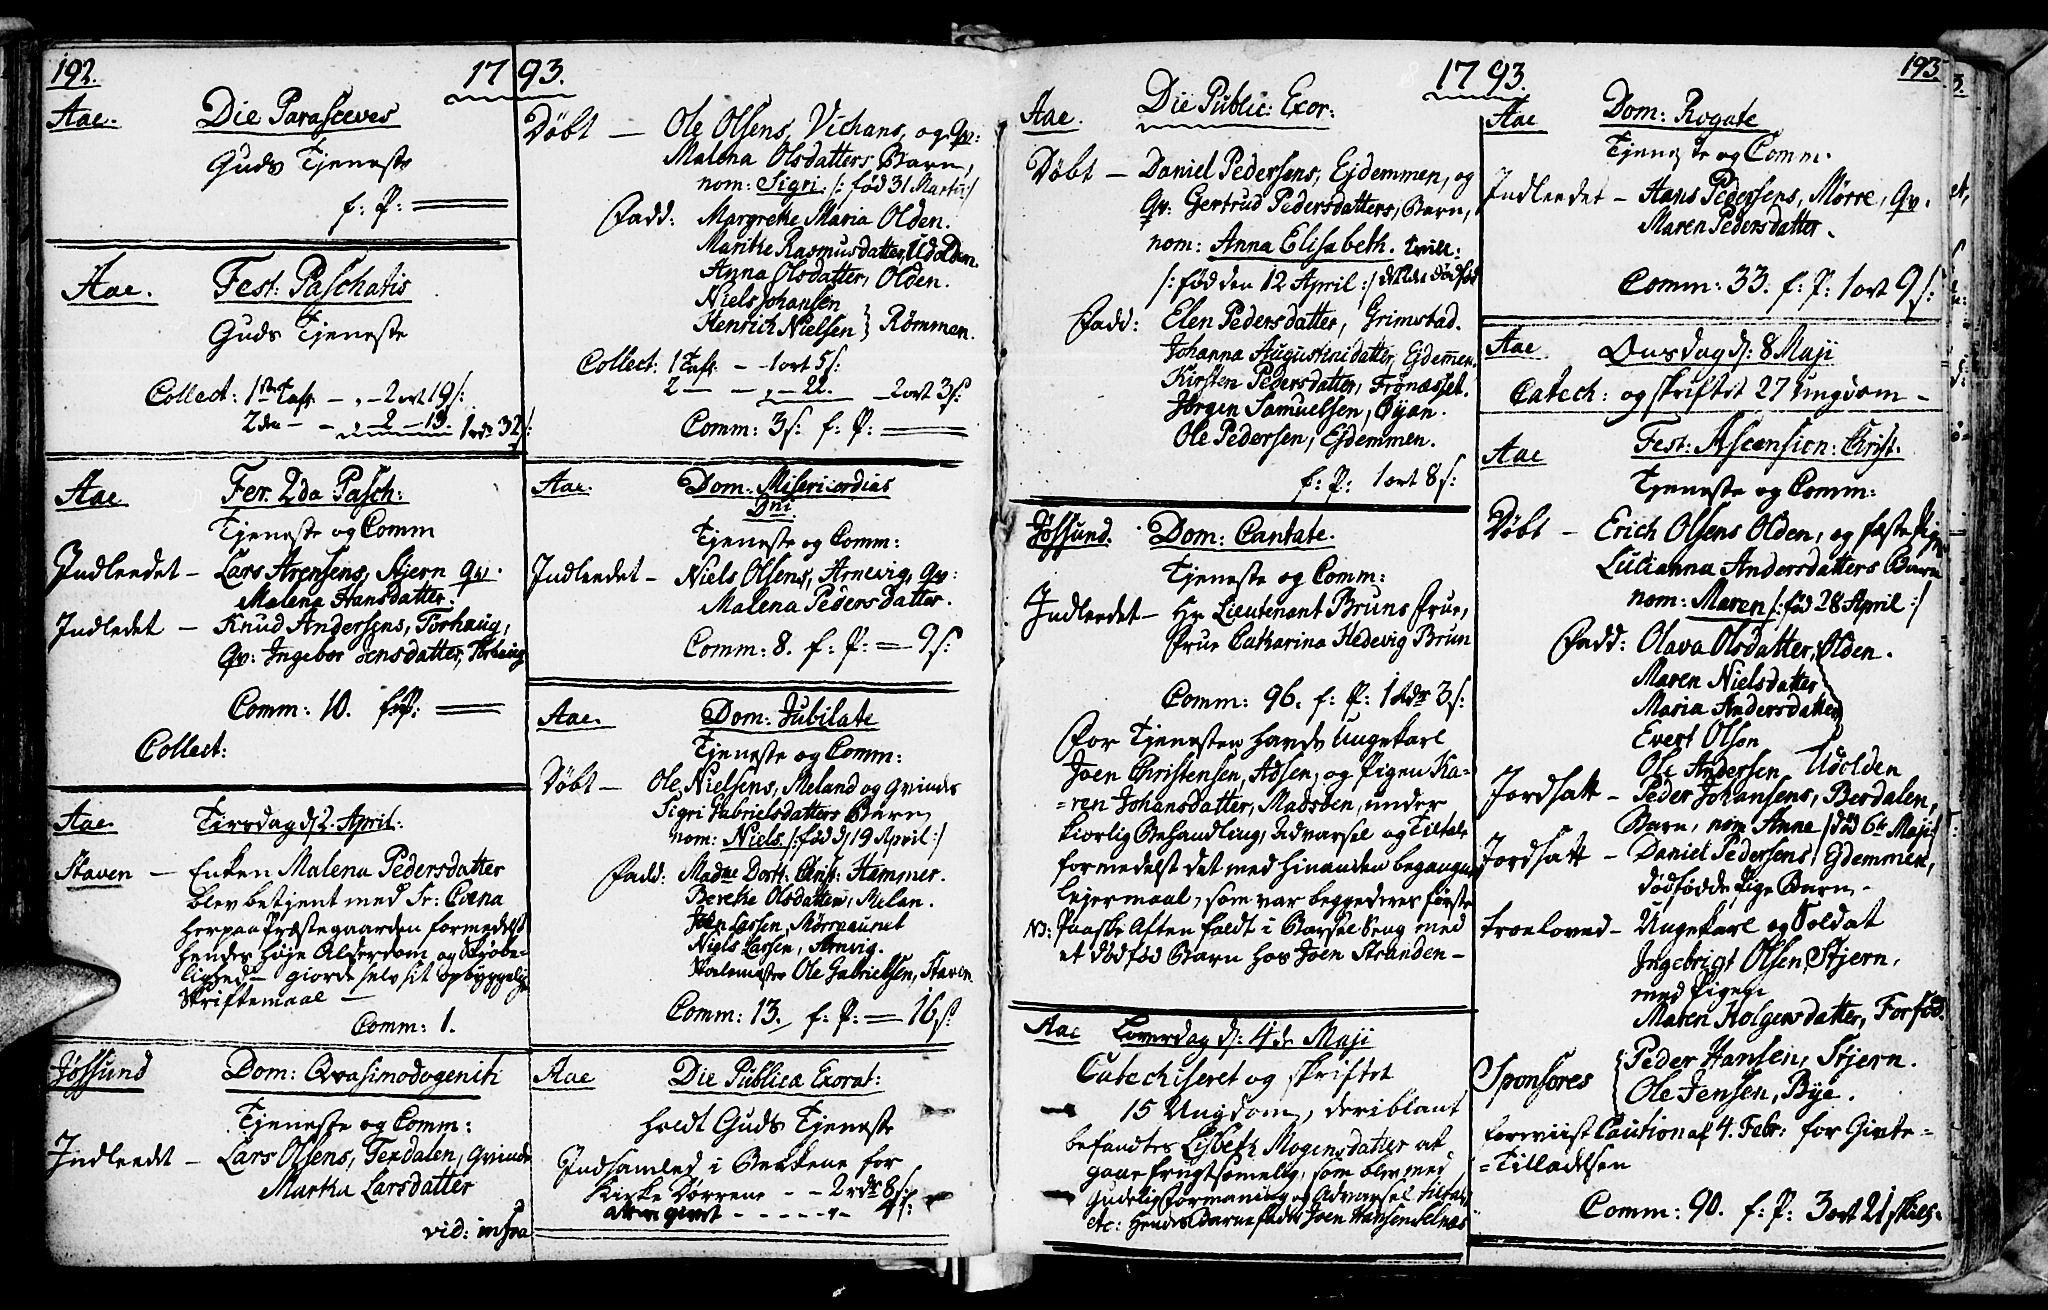 192.
1793.
Aae. Die Parasceves
Guds Tjeneste
f: P: ===
Aae. Fest: Paschatis
Guds Tjeneste
Collect: 1ste Tafl - „ - 2 ort 19 s:
2den - - 2 - 13. 1 rdr 32 s:
Aae Fer. 2da Pasch:
Tjeneste og Comm
Indleedet - Lars Arensens, Stjern Qv.
Malena Hansdatter.
Indledet - Knud Andersens, Torhaug,
Qv: Ingebor Jensdatter, Torhaug
Comm: 10. f: P: ===
Collect:
Aae. Tirsdag d. 2. April:
Staven - Enken Malena Pedersdatter
blev betjent med Sr: Coena
her paa Præstegaarden formedelst
hendes høje Alderdom og Skrøbe-
lighed - giorde selv sit opbyggelige
Skriftemaal -
Comm: 1.
Jøssund Dom: Qvasimodogeniti
Tjeneste og Comm:
Indleedet - Lars Olsens, Terdalen, Qvinde
Martha Larsdatter
vid: infra
Døbt - Ole Olsens, Vichans, og Qv:
Malena Olsdatters Barn,
nom: Sigri. /: fød 31 Martii :/
Fadd: Margrethe Maria Olden.
Marithe Rasmusdatter, Udolden.
Anna Olsdatter, Olden.
Niels Johansen
Henrich Nielsen } Rømmen.
Collect: 1 Tafl. - - 1 ort 5 s:
2 - - „ - 22. - 2 ort 3 s:
Comm: 3 s: f: P: ===
Aae. Dom: Misericordias
Dni.
Tjeneste og Comm:
Indleedet - Niels Olsens, Arnevig, Qv:
Malena Pedersdatter.
Comm: 8. f: P: = 9 s:
Aae. Dom: Jubilate
Tjeneste og Comm:
Døbt - Ole Nielsens, Meland og Qvindes
Sigri Gabrielsdatters Barn
nom: Niels /: fød d. 19 April :/
Fadd: Madme Dort: Christ: Hammer.
Berethe Olsdatter, Melan.
Joen Larsen, Mørreaunet
Niels Larsen, Arnvig.
Skolemester Ole Gabrielsen, Staven
Comm: 13. f: P: = 16 s:
Aae Die Publica Exorat:
holdt Guds Tjeneste
Indsamled i Bekkene for
Kirke Dørrene - - 2 rdr 8 s:
- - - - 4 s:
193
1793.
Aae. Die Public: Exor:
Døbt - Daniel Pedersens, Ejdemmen, og
Qv: Gertrud Pedersdatters, Barn,
nom: Anna Elisabeth. tvill:
/: fød den 12 April :/ det 2det dødfød
Fadd: Elen Pedersdatter, Grimstad.
Johanna Augustinidatter, Ejdemen.
Kirsten Pedersdatter, Frønæsset.
Jørgen Samuelsen, Øÿan.
Ole Pedersen, Ejdemmen.
f: P: 1 ort 8 s:
Jøssund. Dom: Cantate.
Tjeneste og Comm:
Indleedet - Hr Lieutenant Bruns Frue,
Frue Catharina Hedevig Brun
Comm: 96. f: P: 1 rdr 3 s:
For Tjenesten havde Ungekarl
Joen Christensen, Adsen, og Pigen Ka=
=ren Johansdatter, Madsøen, under
kiærlig Behandling, Advarsel og Tiltale
formedelst det med hinanden begangne
Lejermaal, som var beggederes første
NB: Paaske Aften faldt i Barsel Seng med
et dødfød Barn hos Joen Stranden -
Aae Løverdag d: 4de Maji
Catechiseret og skriftet
15 Ungdom, deriblant
befandtes Lisbeth Mogensdatter at
gaae frugtsommelig, som blev med
Gudelig Formaning og Advarsel tiltalt
etc: Hendes Barnefader Joen Hansen Selnæs
Aae Dom: Rogate
Tjeneste og Comm.
Indleedet - Hans Pedersens, Mørre, Qv.
Maren Pedersdatter.
Comm: 33. f: P: 1 ort 9 s:
Aae. Onsdag d: 8 Maji
Catech: og skriftet 27 Ungdom -
Aae Fest: Ascension: Christ.
Tjeneste og Comm:
Døbt - Erich Olsens Olden, og fæste Pige
Lucianna Andersdatters Barn
nom: Maren /: fød 28 April :/
Fadd: Olava Olsdatter, Olden.
Maren Nielsdatter
Maria Andersdatter
Evert Olsen
Ole Andersen Udolden
Jordsatt - Peder Johansens, Berdalen,
Barn, nom Anne /: død 6te Maji :/
Jordsatt - Daniel Pedersens, Ejdemmen,
dødfødde Pige Barn -
Troeloved - Ungekarl og Soldat
Ingebrigt Olsen, Stjern,
med Pigen
Maren Holgersdatter, Forfød.
Sponsores { Peder Hansen, Stjern.
Ole Jensen, Bÿe.
forviist Caution af 4. Febr: for Gifte=
=Tilladelsen
Comm: 90. f: P: 3 ort 21 skill.